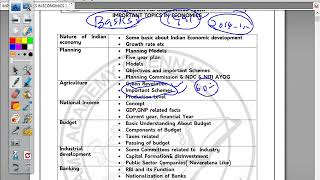 IMPORTANT TOPICS IN ECONOMICS
Basics
Nature of Indian economy
• Some basic about Indian Economic development
• Growth rate etc
Planning
• Planning Models
• Five year plan
• Models
• Objectives and important Schemes
• Planning Commission & NDC & NITI AYOG
Agriculture
• Green Revolution
• Important Schemes
• Production level
National Income
• Concept
• GDP,GNP related facts
• Current year, financial Year
Budget
• Basic Understanding About Budget
• Components of Budget
• Taxes related
• Passing of budget
Industrial development
• Some Committees related to Industry
• Capital Formation& disinvestment
• Public Sector Companies( Navaratena Like)
Banking
• RBI and its Function
• Nationalization of Banks